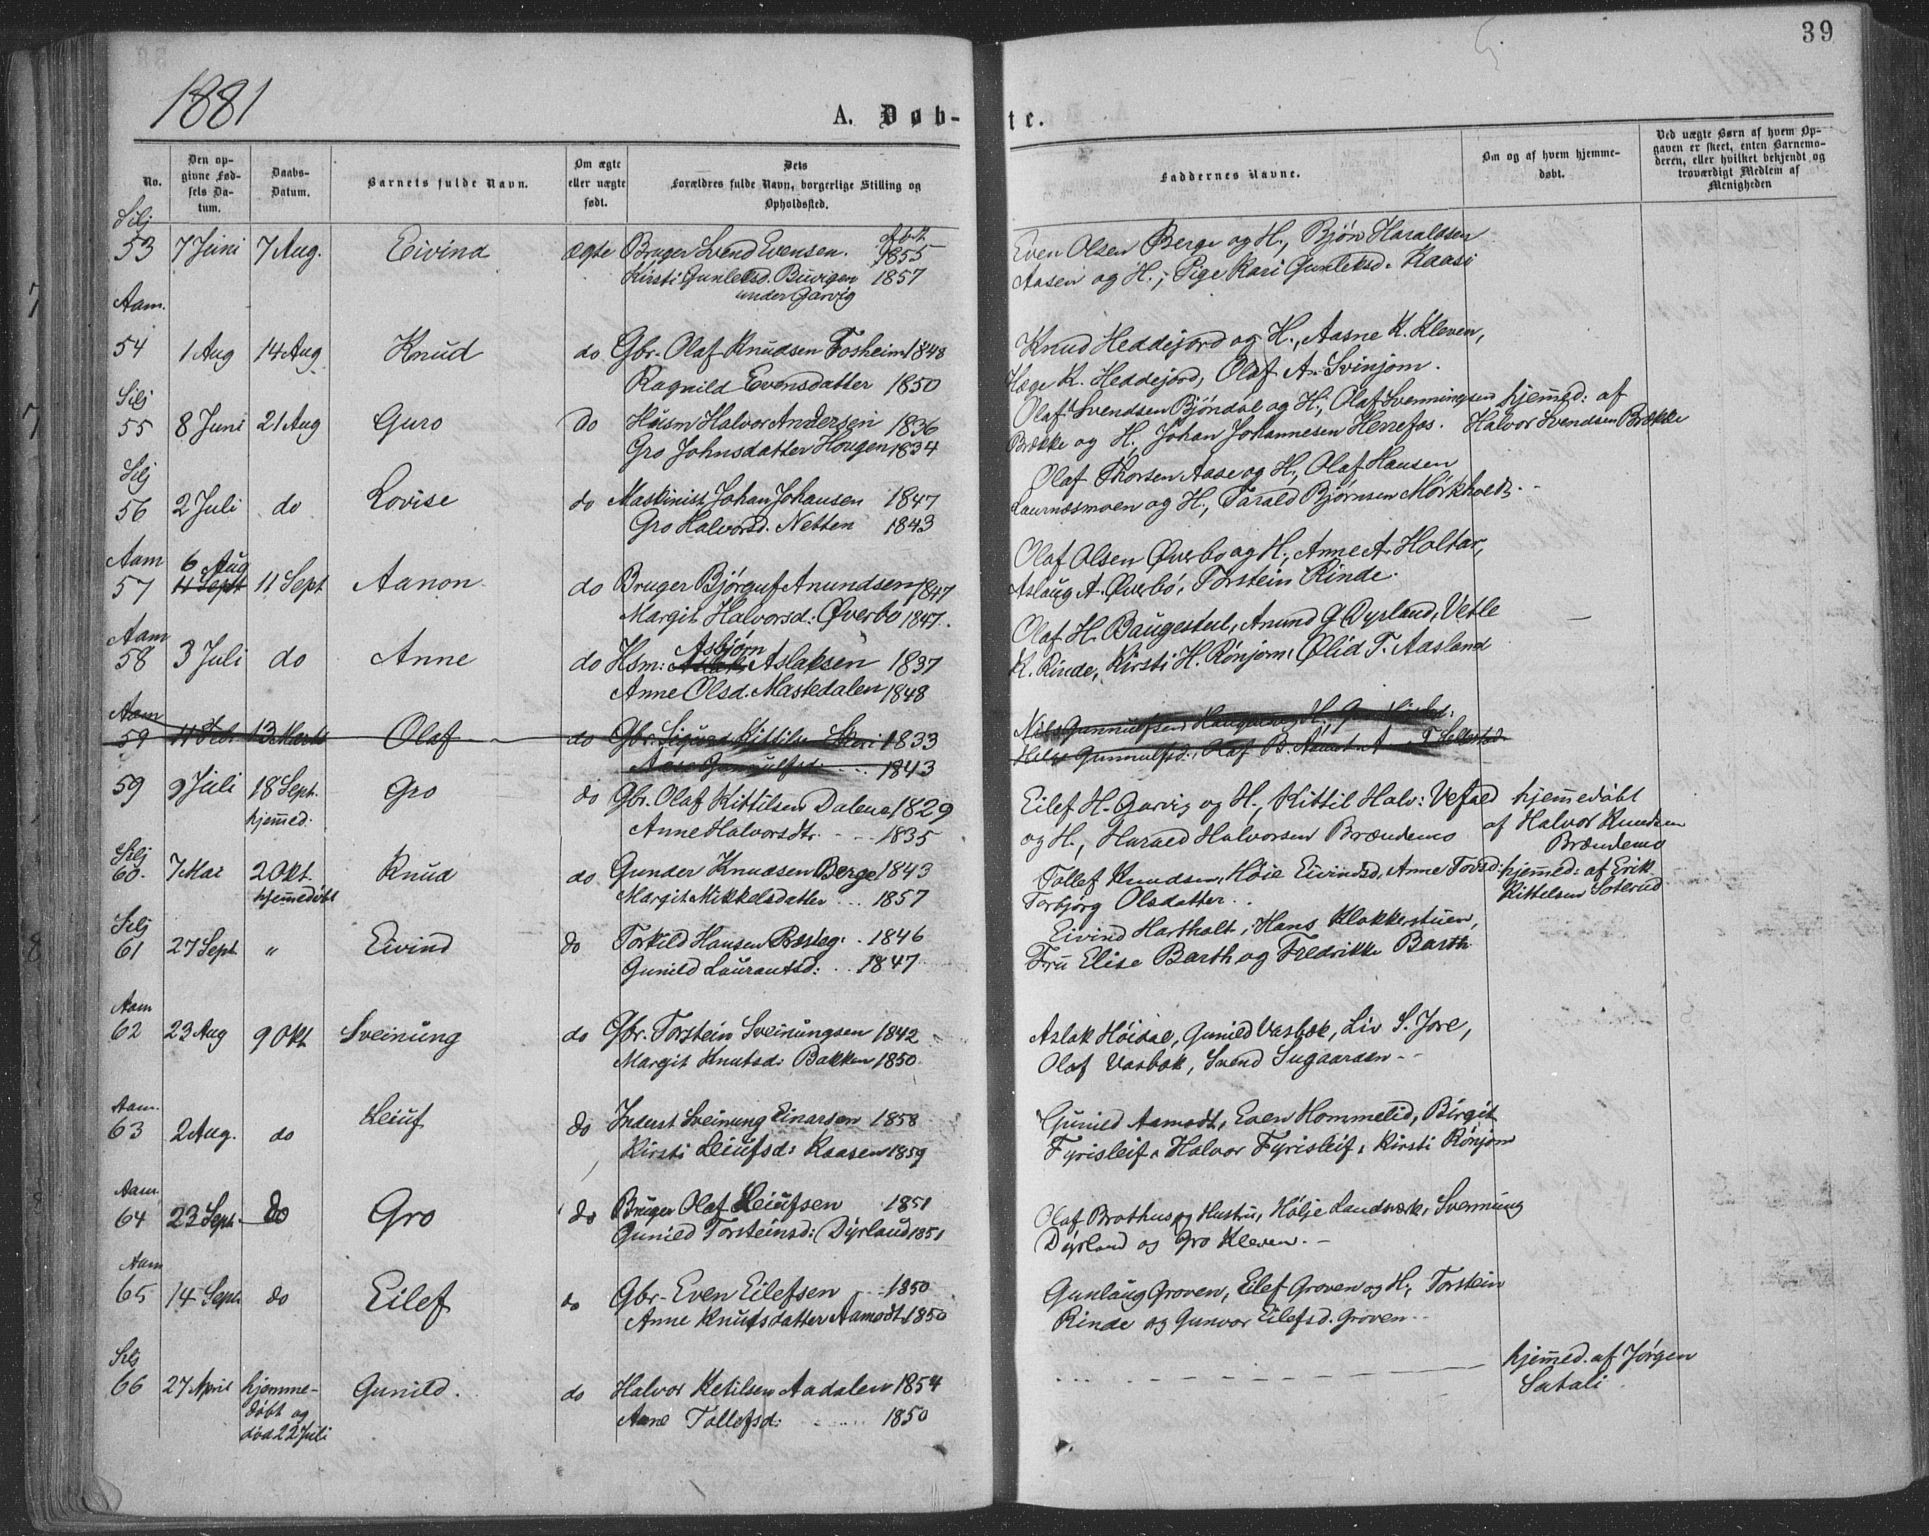 39
1881
A. Døb-
te.
No.
Den opgivne Fødsels Datum.
Daabs-Datum.
Barnets fulde Navn.
Om ægte eller uægte født.
Dets Forældres fulde Navn, borgerlige Stilling og Opholdssted.
Faddernes Navne.
Om og af hvem hjemmedøbt.
Ved uægte Børn af hvem Opgaven er skeet, enten Barnemoderen, eller hvilket bekjendt og troværdigt Medlem af Menigheden
Silj
53 7 Juni 7 Aug. Eivind ægte Bruger Svend Evensen. 1855
Kirsti Gunleksd. Buvigen 1857
under Garvig
Even Olsen Berge og H., Bjøn Haraldsen
Aasen og H., Pige Kari Gunleksd. Kaasi
Aam.
54 1 Aug 14 Aug Knud do Gbr. Olaf Knudsen Fosheim 1848
Ragnild Evensdatter 1850
Knud Heddejord og H., Aasne K. Kleven,
Hæge K. Heddejord, Olaf A. Svinjom.
Silj
55 8 Juni 21 Aug Guro do Husm Halvor Andersen 1836
Gro Johnsdatter Hougen 1834
Olaf Svendsen Bjöndal og H., Olaf Svenningsen
Brække og H., Johan Johannesen Herrefos.
hjemmed: af
Halvor Svendsen Brække
Silj
56 2 Juli do Lovise do Maskinist Johan Johansen 1847
Gro Halvorsd. Netten 1843
Olaf Thorsen Aase og H., Olaf Hansen
Laurnæsmoen og H., Tarald Bjørnsen Mørkholt.
Aam 6 Aug
57 11 Sept 11 Sept Aanon do Bruger Bjørguf Anundsen 1847
Margit Halvorsd: Øverbo 1847.
Olaf Olsen Øverbo og H., Anne A. Holtar,
Aslaug A. Øverbö, Torstein Rinde.
Aam
58 3 Juli do Anne do Hsm: Asbjørn Aslaksen 1837
Anne Olsd. Mastedalen 1848
Olaf H. Baugestul, Anund G Dyrland, Vetle
K. Rinde, Kirsti H. Rónjom, Ølid T. Aasland
Aam
59 11 Febr 13 Marts Olaf do Gbr. Sigurd Kittilsen 1833
Aase Gunnulfsd. 1843
Nils Gunnulfsen
Gunnulfsd., Olaf B.
59 9 Juli 18 Sept. Gro do Gbr. Olaf Kittilsen Dalene 1829
hjemmed.
Anne Halvorsdtr. 1835
Eilef H. Garvig og H., Kittil Halv: Vefald
og H., Harald Halvorsen Brændemo
hjemmedøbt
af Halvor Knudsen
Brændemo
Silj
60. 7 Mai 2 Okt. Knud do Gunder Knudsen Berge 1843
hjemmedøbt
Margit Mikkelsdatter 1857
Tollef Knudsen, Høie Eivindsd, Anne Torsd.
Torbjörg Olsdatter.
hjemmed: af Erik
Kittelsen Soterud
Silj
61 27 Sept. " Eivind do Torkild Hansen Bæsteg. 1846
Gunild Laurantsd: 1847
Eivind Hartholt, Hans Klokkerstuen,
Fru Elise Barth og Fredrikke Barth
Aam
62 23 Aug 9 Okt Sveinung do Gbr. Torstein Sveinungsen 1842
Margit Knutsd: Bakken 1850.
Aslak Höidal, Gunild Vasbæk, Liv S. Jore,
Olaf Vasbæk, Svend Sugaarden
Aam.
63 2 Aug. do Leiuf do Inderst Sveinung Einarsen 1858
Kirsti Leiufsd: Kaasen 1859
Gunild Aamodt, Even Hommelid, Birgit
Fyrisleif, Halvor Fyrisleif, Kirsti Rónjom
Aam.
64 23 Sept. do Gro do Bruger Olaf Leiufsen 1851
Gunild Torsteinsd: Dyrland 1851
Olaf Brathus og Hustru, Hölje Landværk, Svennung
Dyrland og Gro Kleven.
Aam
65 14 Sept. do Eilef do Gbr. Even Eilefsen 1850
Anne Knutsdatter Aamodt 1850
Gunlaug Groven, Eilef Groven og H., Torstein
Rinde og Gunvor Eilefsd. Groven.
Silj
66 27 April hjemme- Gunild. do Halvor Ketilsen Aadalen 1854
døbt og
død 22 Juli
Anne Tollefsd: 1850
hjemmed. af Jørgen
Satali